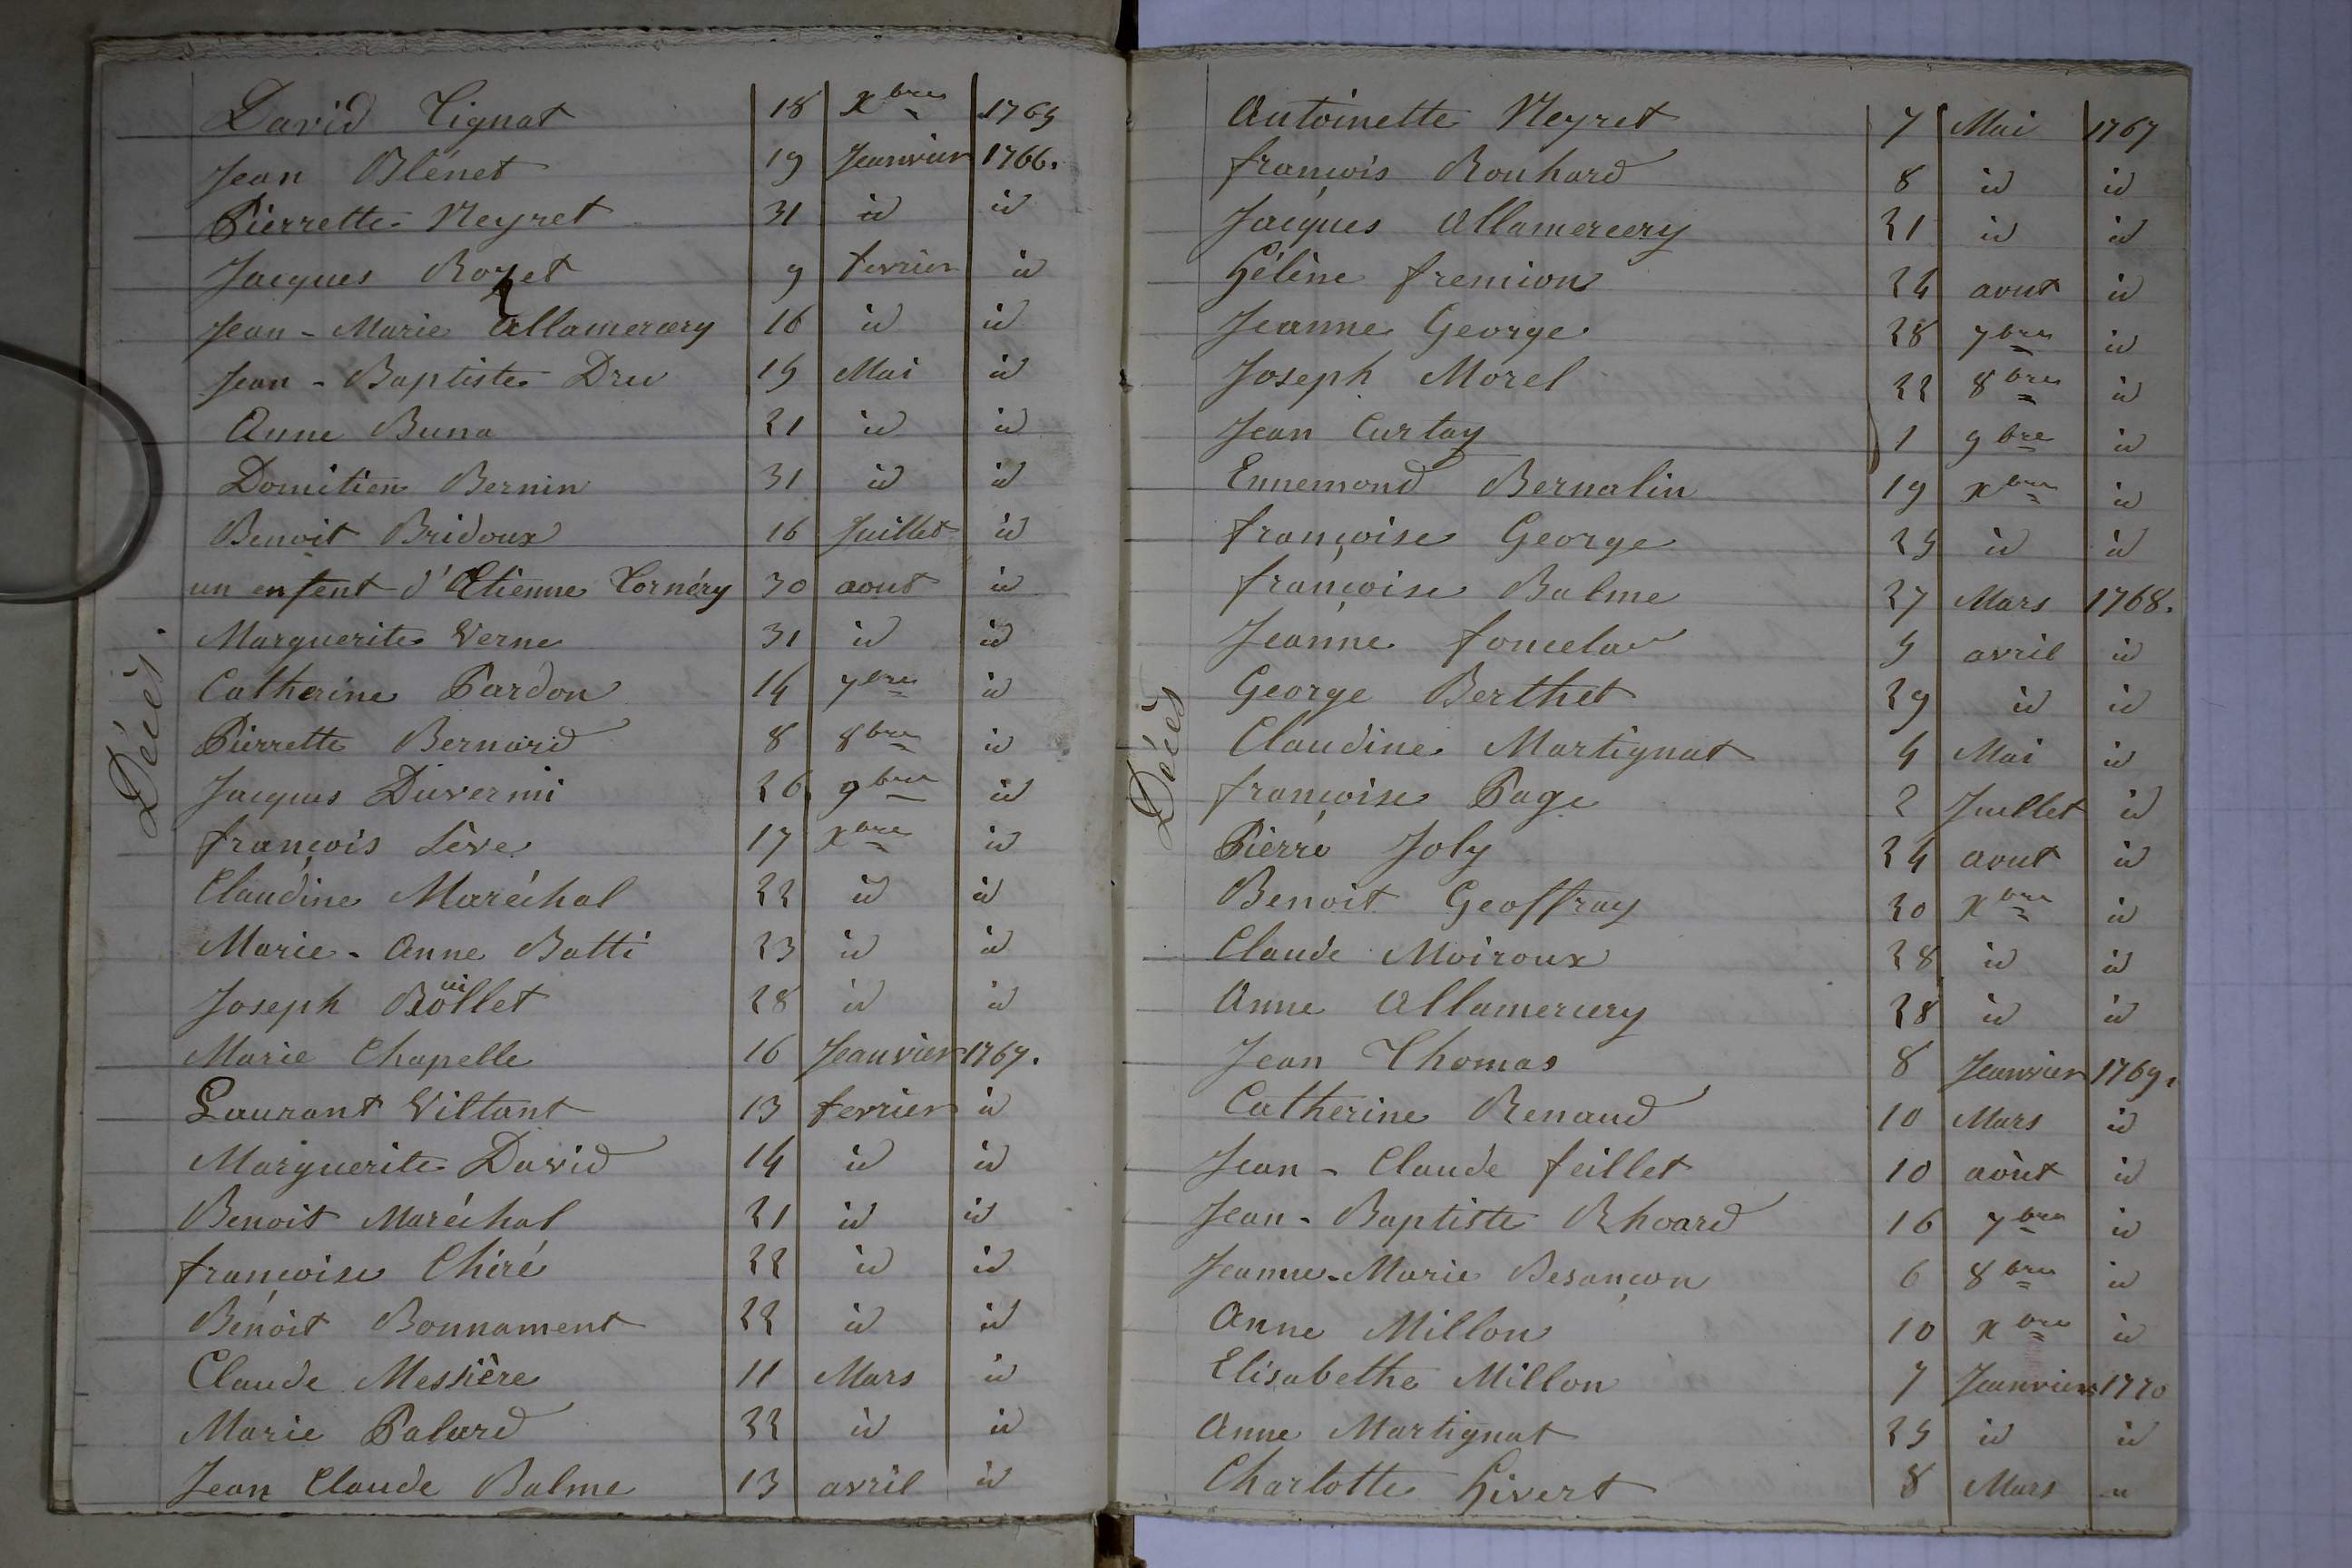 Décès.
David Tignat 18 Xbre 1765
Jean Blénet 19 Jeanvier 1766.
Pierrette Neyret 31 id id
Jacques Rozet 9 fevrier id
Jean-Marie Allamercery 16 id id
Jean-Baptiste Dru 15 Mai id
Anne Buna 21 id id
Domitien Bernin 31 id id
Benoit Bridoux 16 Juillet id
un enfent d'Etienne Cornéry 30 aout id
Marguerite Verne 31 id id
Catherine Pardon 14 7bre id
Pierrette Bernard 8 8bre id
Jacques Duvermi 26 9bre id
françois Sève 17 Xbre id
Claudine Maréchal 22 id id
Marie-Anne Batti 23 id id
Joseph 28 id id
Marie Chapelle 16 Jeanvier 1767.
Laurant Viltant 13 fevrier id
Marguerite David 14 id id
Benoit Maréchal 21 id id
françoise Chiré 22 id id
Benoit Bonnament 22 id id
Claude Messière 11 Mars id
Marie Palard 22 id id
Jean Claude Balme 13 avril id
Décès
Antoinette Neyret 7 Mai 1767
françois Rouhard 8 id id
Jacques Allamercery 21 id id
Hélène fremion 24 aout id
Jeanne George 28 7bre id
Joseph Morel 22 8bre id
Jean Curtay 1 9bre id
Ennemond Bernalin 19 Xbre id
françoise George 25 id id
françoise Balme 27 Mars 1768.
Jeanne foncela 5 avril id
George Berthet 29 id id
Claudine Martignat 4 Mai id
françoise Page 2 Juillet id
Pierre Joly 24 aout id
Benoit Geoffray 20 Xbre id
Claude Moiroux 28 id id
Anne Allamercery 28 id id
Jean Thomas 8 Jeanvier 1769.
Catherine Renaud 10 Mars id
Jean-Claude feillet 10 août id
Jean-Baptiste Rhoard 16 7bre id
Jeanne-Marie Besançon 6 8bre id
Anne Millon 10 Xbre id
Elisabethe Millon 7 Jeanvier 1770
Anne Martignat 25 id id
Charlotte Hivert 8 Mars